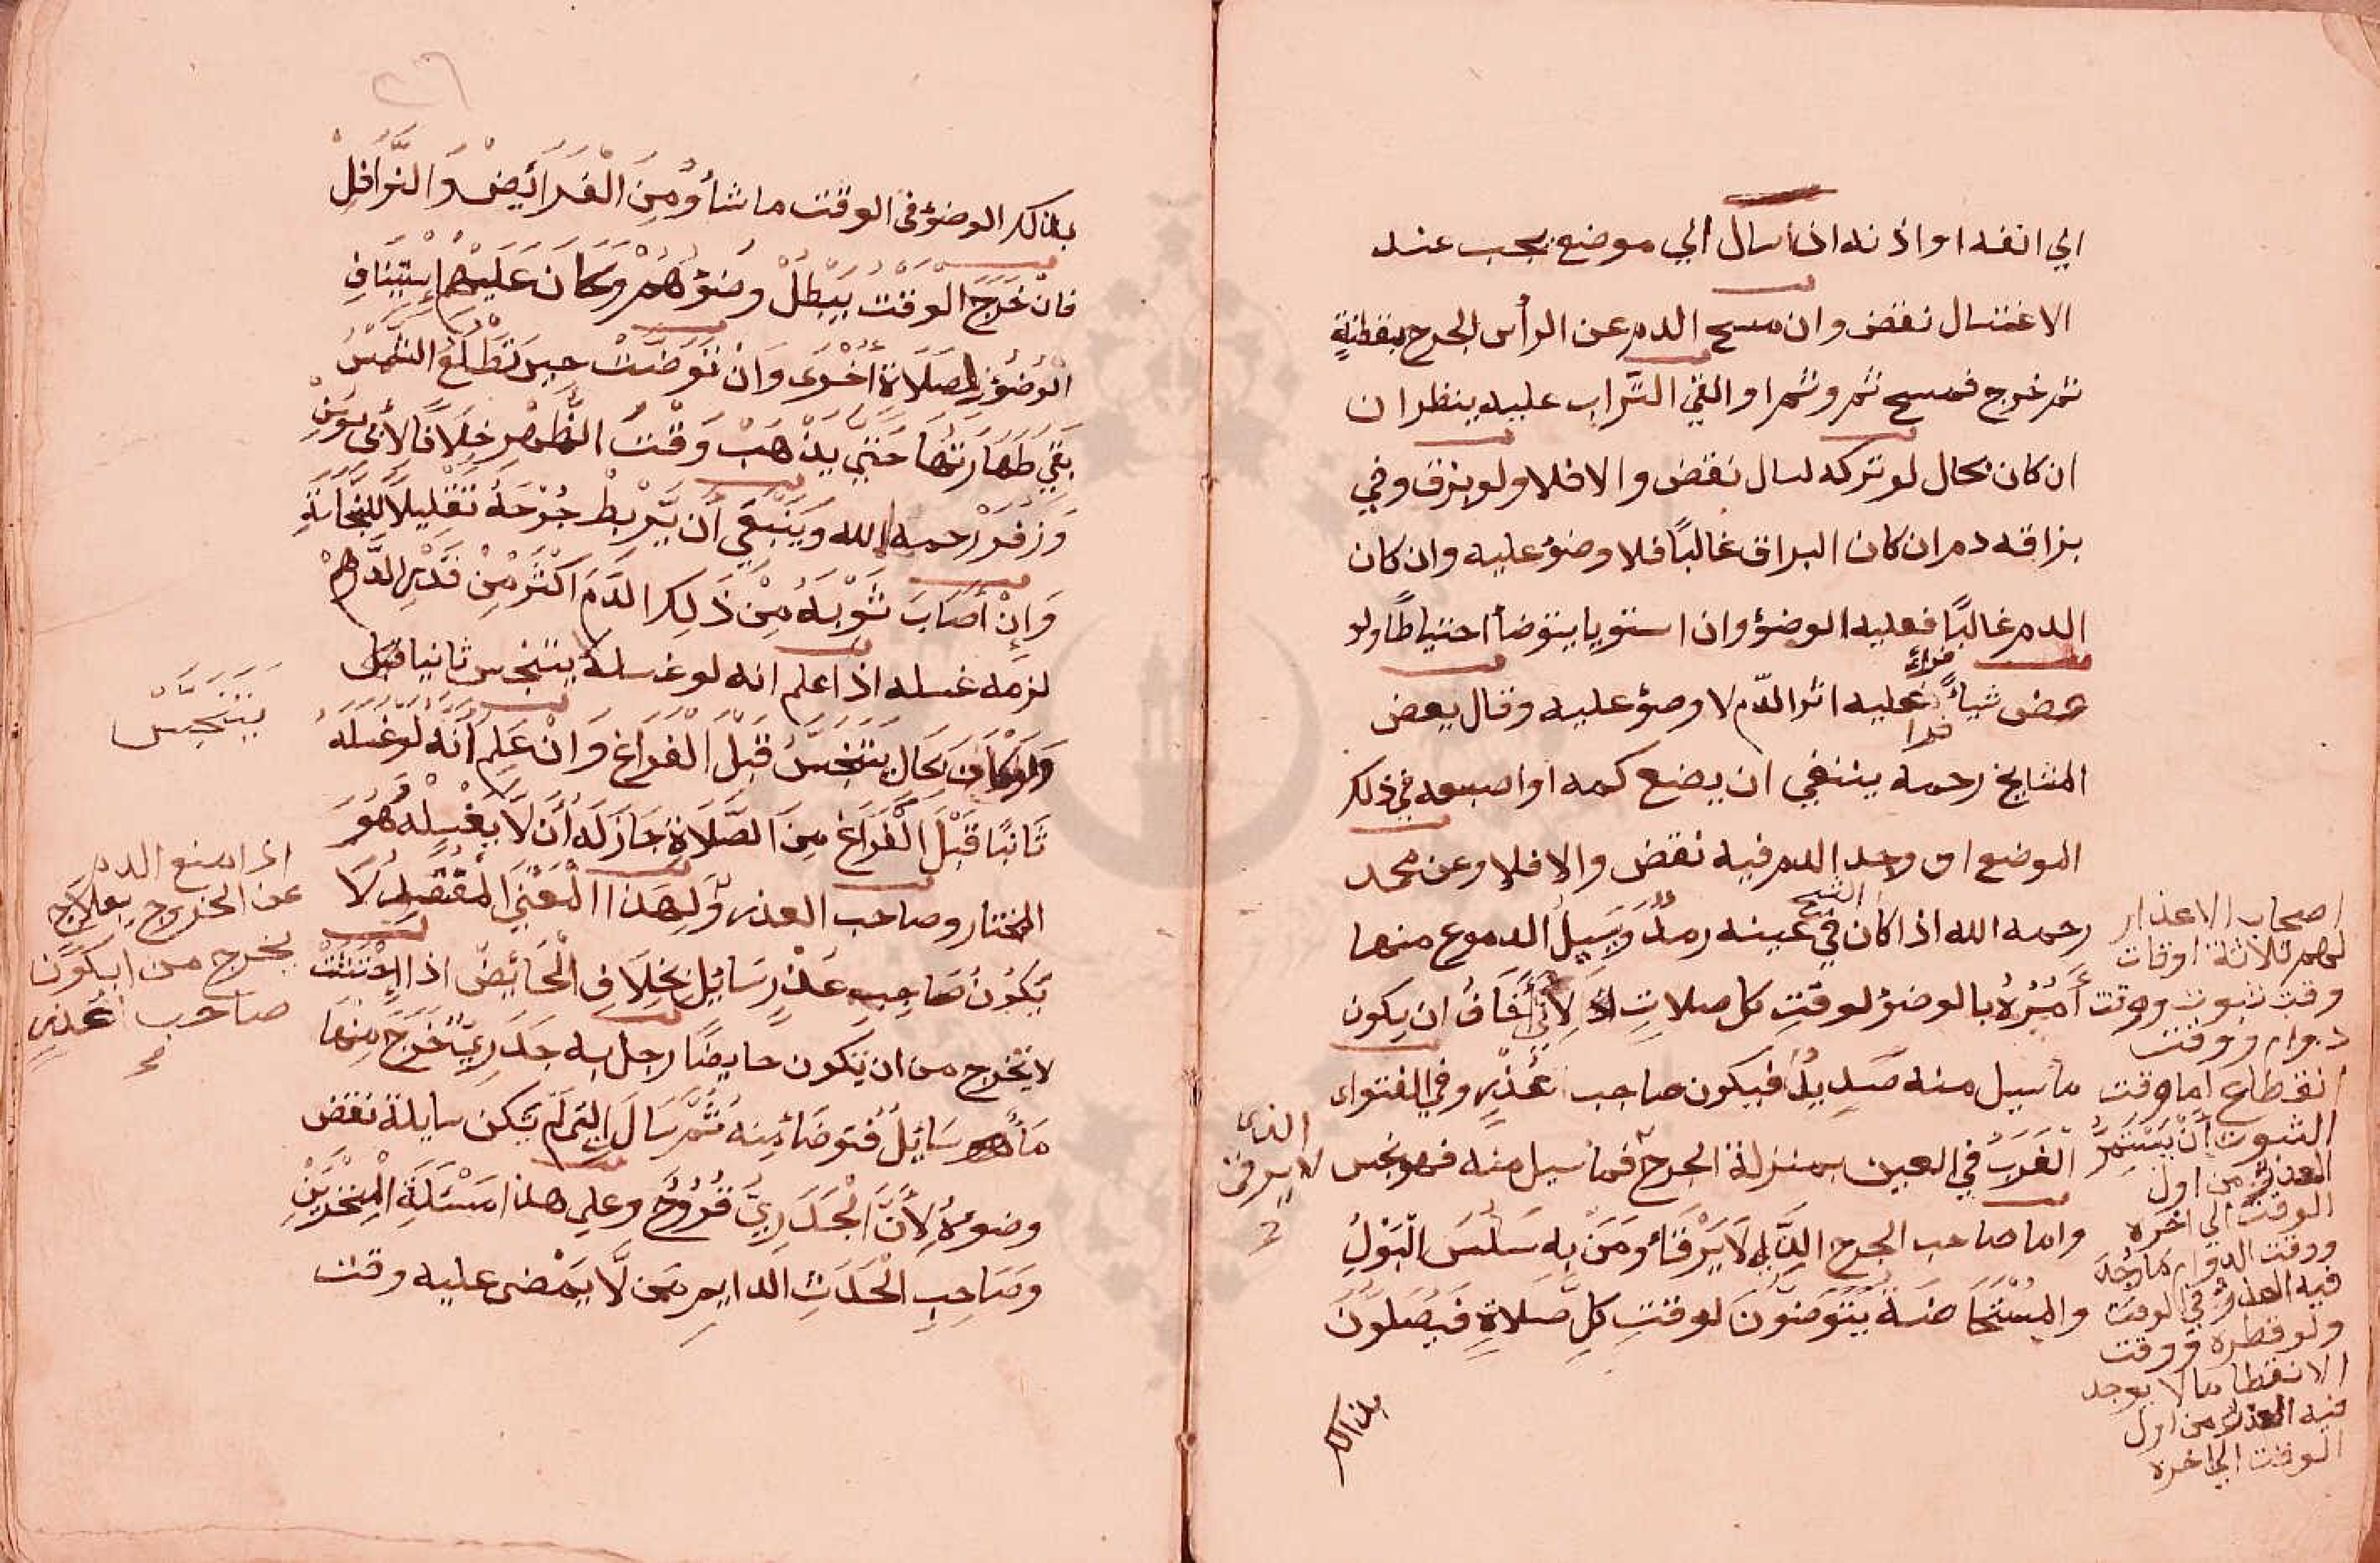 الي انفه او اذنه ان سال الي موضع يجب عند
الاغتسال نقض وان مسح الدم عن الرأس الجرح بقطنةٍ
ثم خرج فمسح ثم وثم او القي التراب عليه ينظر ان
ان كان بحال لو تركه لسال نقض والا فلا ولو بزق وفي
بزاقه دم ان كان البزاق غالبًا فلا وضؤ عليه وان كان
الدم غالبًا فعليه الوضؤ وان استويا يتوضأ احتياطًا ولو
عض شياءً عليه اثر الدّم لا وضؤ عليه وقال بعض
فراءَ
المشايخ رحمه ينبغي ان يضع كمه او اصبعه في ذلك
الموضع ان وجد الدم فيه نقض والا فلا وعن محمد
رحمه الله اذا كان في عينه رمدٌ ويَسِيلُ الدموع منها
الشيخ
أَمُرُهُ بالوضؤ لوقتِ كل صلاتٍ لِأَنِّي أَخَافُ ان يكون
ما سيل منه صَدِيدٌ فيكون صاحب عُذْرٍ وفي الفتواء
الغَرَبُ في العين بمنزلة الجرح فما سيل منه فهو نجس
واما صاحب الجرح الَّذِي لَا يَرْقَاءُ ومَنْ به سَلَسُ الْبَوْلِ
والمُسْتَحَاضَةُ يَتَوَضَّوُنَ لوقتِ كلِّ صَلَاةٍ فَيُصَلُّونَ
بذالك
اصحاب الاعذار
لهم ثلاثة اوقات
وقت ثبوت ووقت
دوام ووقت
انقطاع اما وقت
الثبوت أَنْ يَسْتَمِرَّ
العذر من اول
الوقت الي اخره
ووقت الدوام ما وُجِدَ
فيه العذر في الوقت
ولو قطرة ووقت
الانقطا ما لا يوجد
فيه العذر من اول
الوقت الي اخره
الذى
لا يرقئ
٢٦
بذالك الوضؤ في الوقت ما شاؤُ مِنَ الْفَرَائِيضْ والنَّوَافِلْ
فانْ خَرَجَ الوقت يَبْطُلْ وضؤهُمْ وَكَانَ عَلَيْهِم اِسْتِينَافِ
الْوُضُؤِ لِصَلَاةٍ أُخْرَى وَانْ تَوَضَّتْ حينَ تَطْلَعُ الشَّمْسُ
بَقِيَ طَهَارَتُهَا حَتَّي يَذْهَبْ وَقْتُ الظُّهْرِ خِلَافًا لأبي يوسُفْ
وَزُفَرْ رحمه الله وَيَنْبَغِي أَن يَّرْبِطْ جُرْحَهُ تَقْلِيلًا لِلنَّجَاسَةِ
وَإِنْ أَصَابَ ثَوْبَهُ مِنْ ذَلِكَ الدَّمَ اكثَرْ مِنْ قَدْرِ الدِّرْهَمْ
لزمه غسله اذا علم انه لو غسله لا يتنجس ثانيا قبل
ولو كَانَ بِحَالٍ يَتَنَجَّسُ قَبْلَ الفَرَاغِ وَانْ عَلِمَ أَنَّه لو غَسَلَهُ
ثَانِيًا قَبْلَ الْفَرَاغِ مِنَ الصَّلَاةِ جَازَ لَه أَنْ لَّا يَغْسِلْه هُوَ
المختار وصاحب العذر وَلِهَذَا الْمَعْنَي الْمُقْتَصِدُ لَا
يَكُونُ صَاحِبِ عُذْرٍ سَائِلٍ بِخِلَافِ الْحَائِضْ اذا احْتَشَتْ
لا يَخْرج من ان يَّكون حايضًا رجل به جَدَرِيٌّ خَرَجَ مِنْهَا
مَاءٌ سَائِلٌ فتوضَّاء مِنه ثُمَّ سَالَ الَّتي لَم يَكن سايلة نقض
وضوءهُ لِأَنَّ الْجَدَرِيَّ قُرُوحٌ وعلي هذا مَسْئَلَةِ الْمِنْخَرَيْنِ
وصَاحِبِ الْحَدَثِ الدايم مَن لَّا يَمْضى عليه وقت
يَتَنَجَّسْ
اذا منع الدم
عن الخروج بعلاج
يخرج من ان يكون
صاحب عُذرٍ